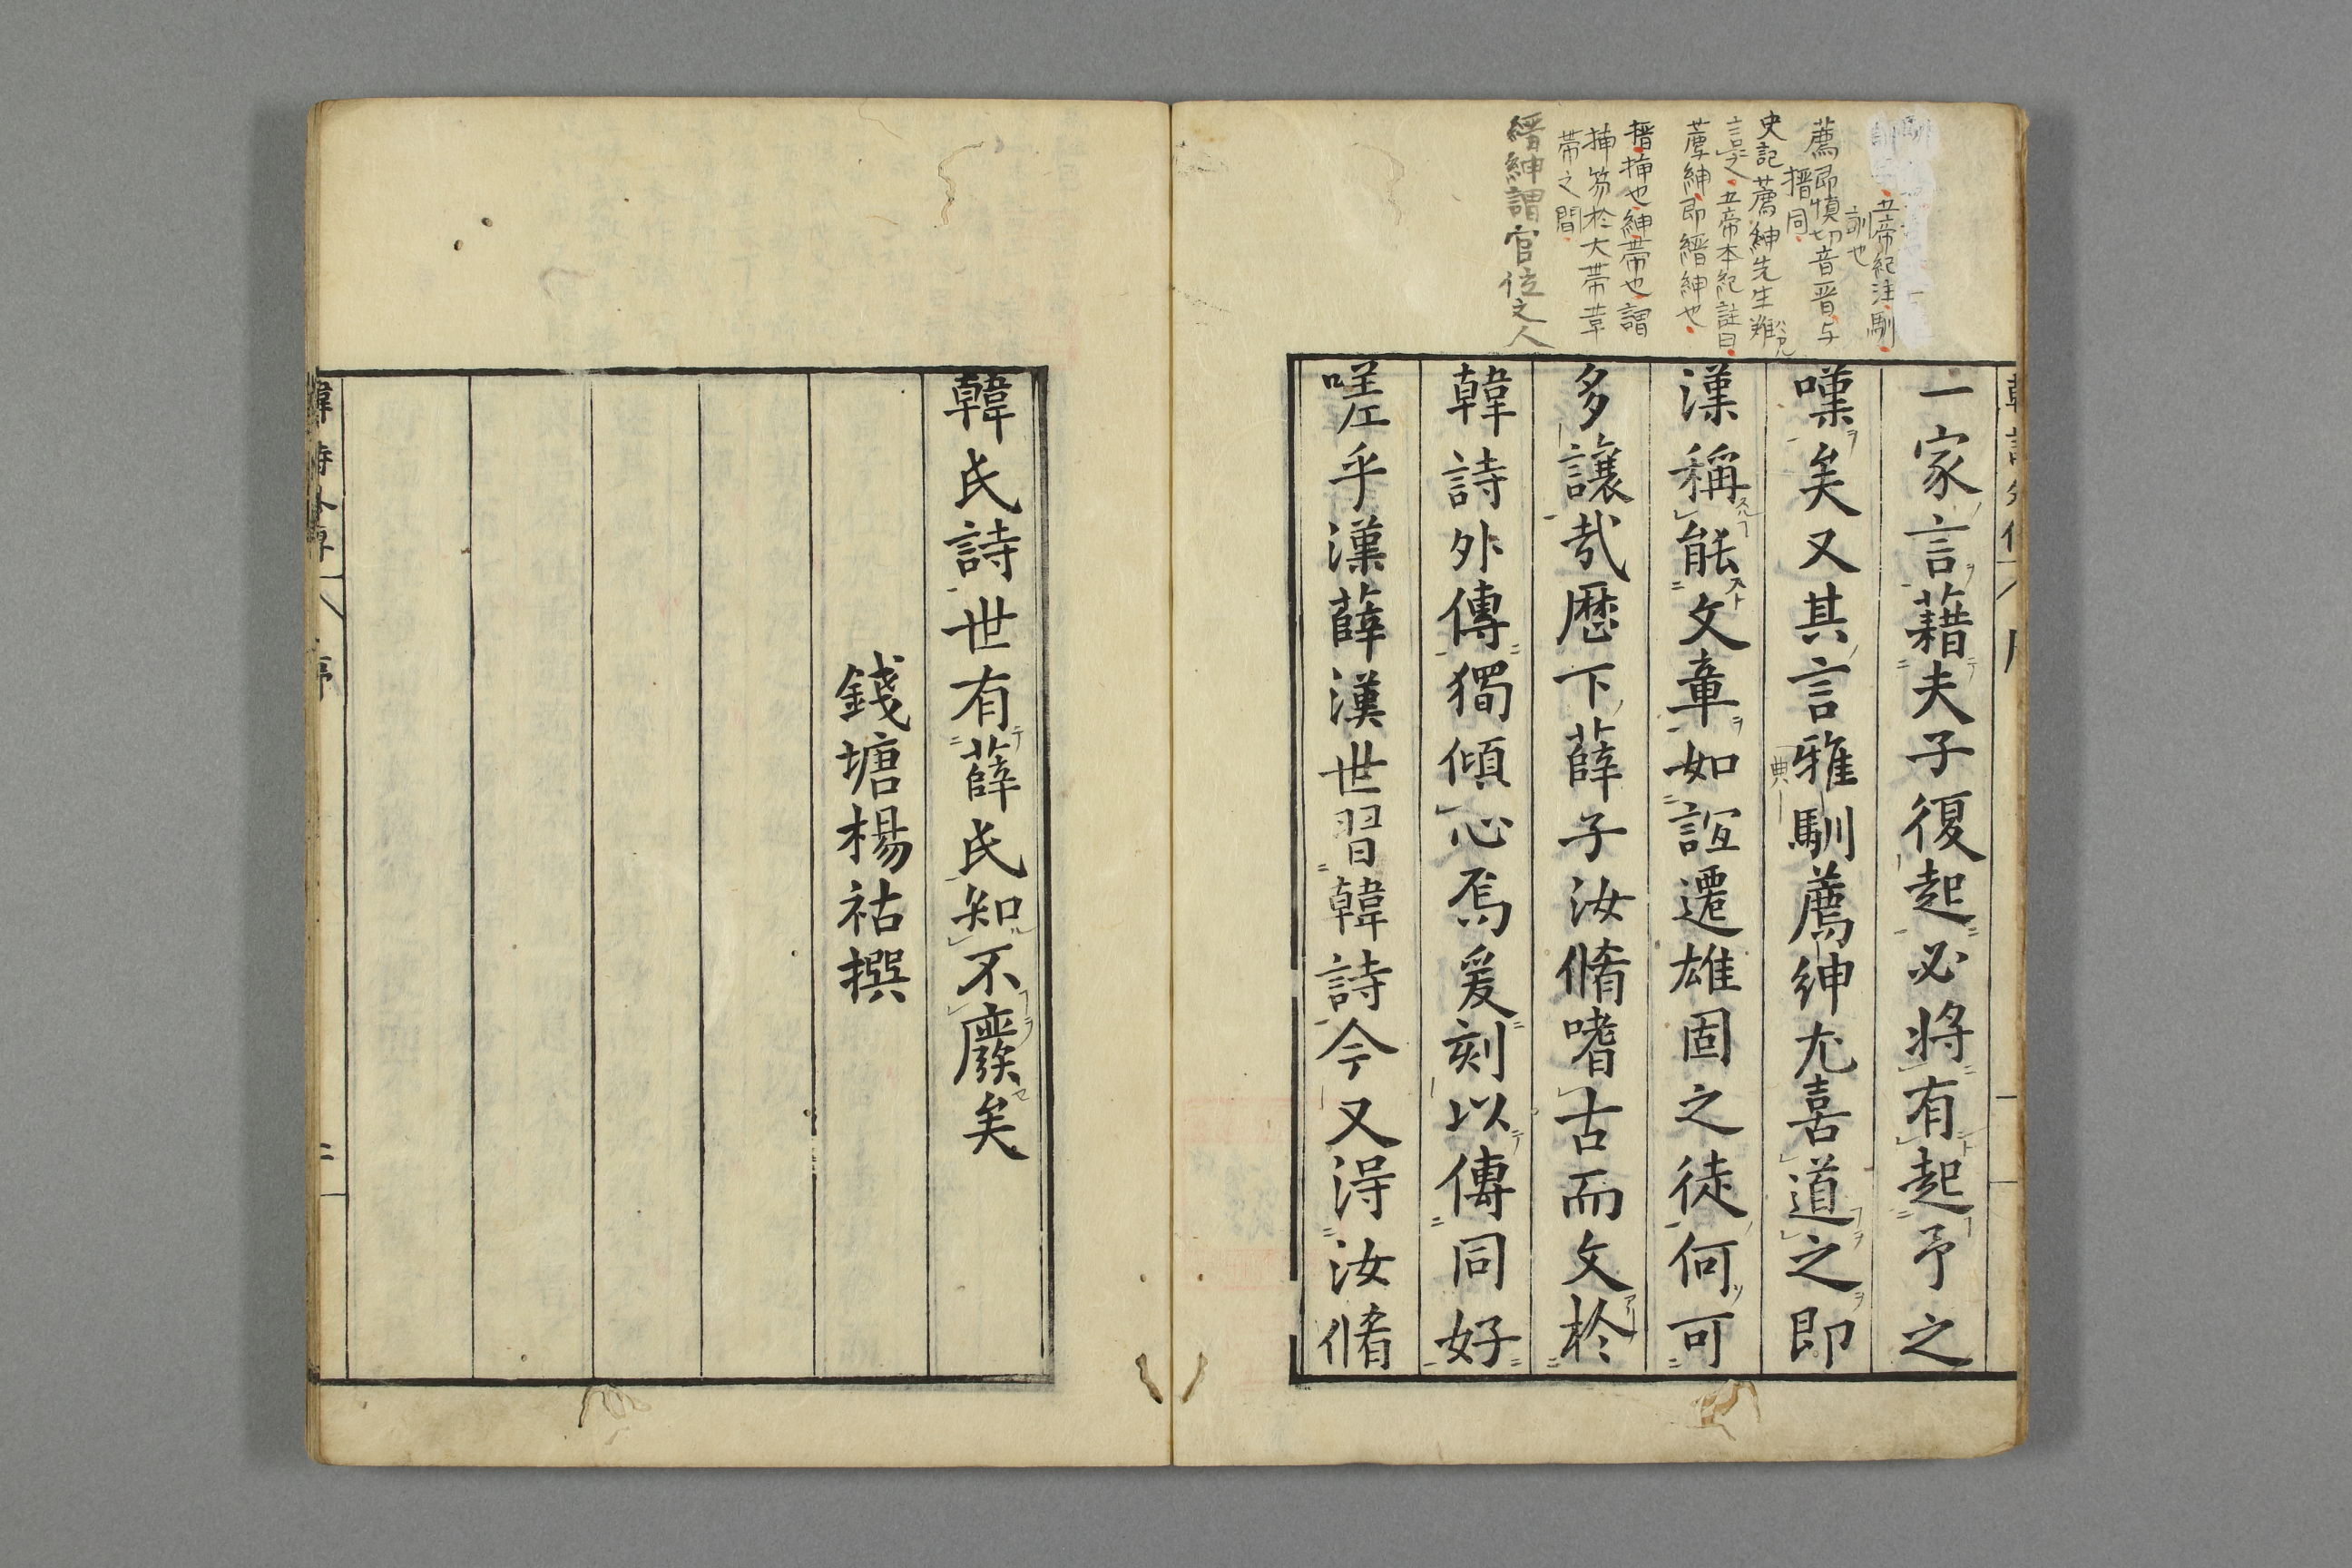 五帝紀注馴
訓也
薦即慎切音晋与
搢同
史記薦紳先生難
言之五帝本紀註曰
薦紳即縉紳也
搢揷也紳帶也謂
揷笏於大帶革
帶之間
縉紳謂官位之人
一家言藉夫子復起必將有起予之
嘆矣又其言雅馴薦紳尤喜道之即
漢稱能文章如誼遷雄固之徒何可
多讓哉歷下薛子汝脩嗜古而文於
韓詩外傳獨傾心焉爰刻以傳同好
嗟乎漢薛漢世習韓詩今又淂汝脩
韓氏詩世有薛氏知不廢矣
錢塘楊祜撰
韓詩外傳
序
二